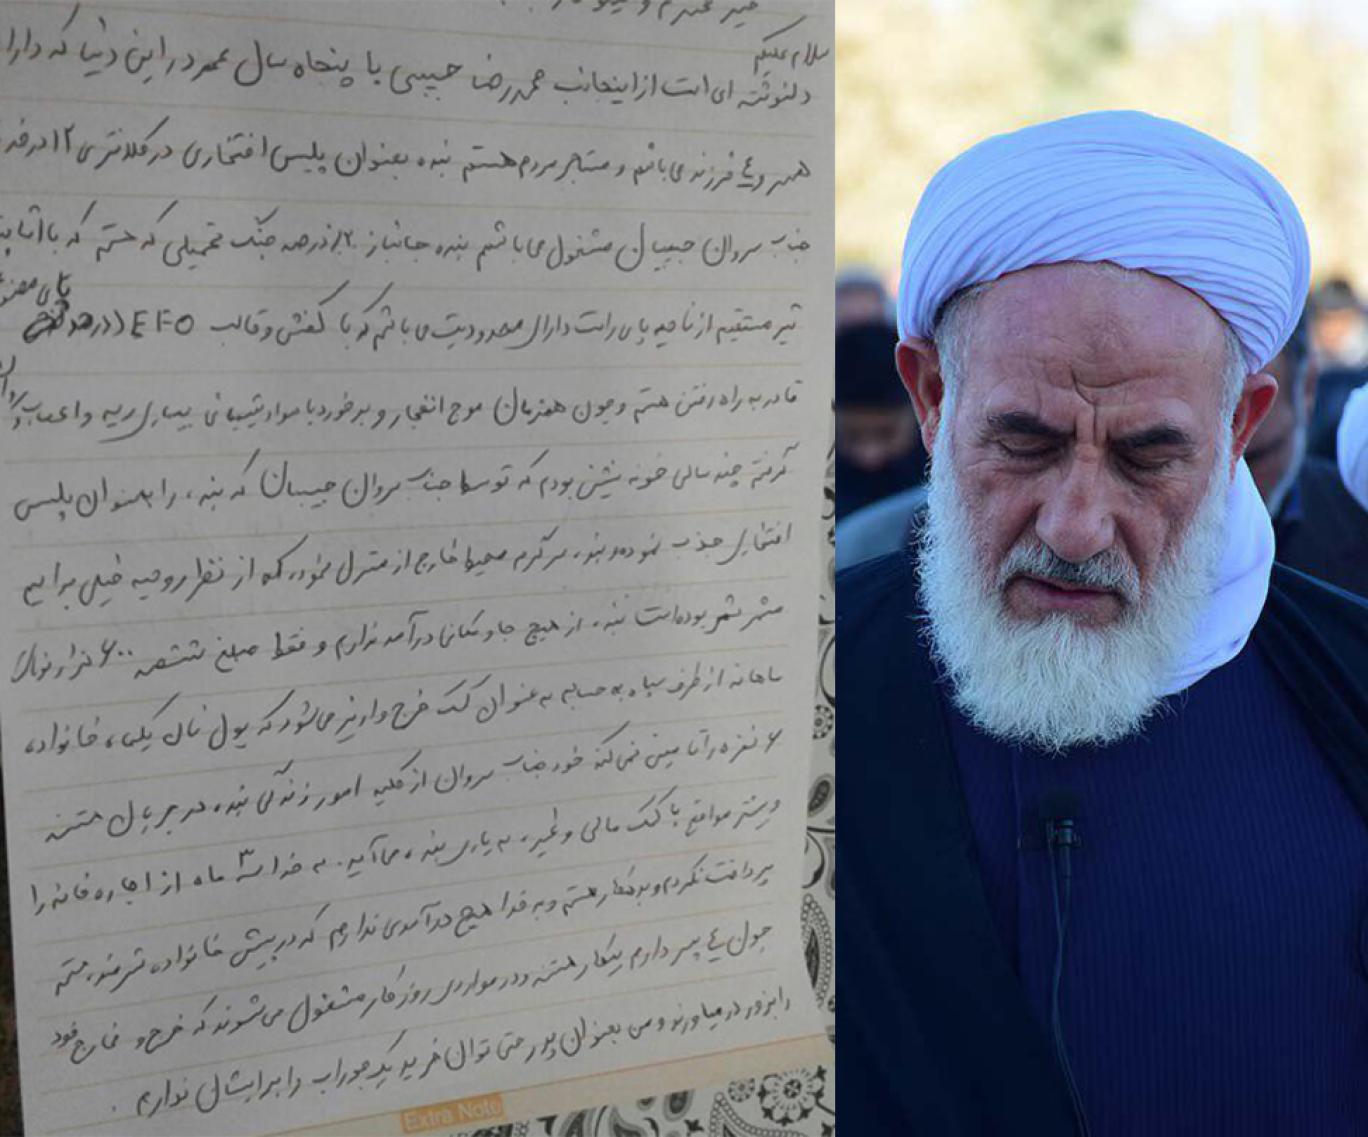 سلام علیکم
دلنوشته ای است از اینجانب محمدرضا حبیبی با پنجاه سال عمر در این دنیا که دارا
همسر و ۴ فرزند می باشم و مستاجر مردم هستم بنده بعنوان پلیس افتخاری در کلانتری ۱۲ در
جناب سروان حبیبیان مشغول می باشم بنده جانباز ۲۰ درصد جنگ تحمیلی که هستم که با
تیر مستقیم از ناحیه پای راست دارای محدودیت می باشم که با کفش و قالب EFO
پای
قادر به راه رفتن هستم و چون همزمان موج انفجار و برخورد با مواد شیمیایی بیماری ریه و اعصاب
گرفته چند سالی خونه نشین بودم که توسط جناب سروان حبیبیان که بنده را بعنوان پلیس
افتخاری جذب نموده و بنده سرگرم محیط خارج از منزل نمودند که از نظر روحیه خیلی برایم
مثمر ثمر بوده است بنده از هیچ جا و مکانی درآمد ندارم و فقط مبلغ ششصد ۶۰۰ هزار تومان
ماهانه از طرف سپاه به حسابم به عنوان کمک خرج واریز می شود که پول نان یکماه خانواده
۶ نفره را تامین نمی کند خود جناب سروان از کلیه امور زندگی بنده در جریان هستند
و بیشتر مواقع با کمک مالی و غیره به یاری بنده می آید. به خدا ۳ ماه از اجاره خانه را
پرداخت نکردم و بدهکار هستم و به خدا هیچ درآمدی ندارم که در پیش خانواده شرمنده هستم
چون ۴ پسر دارم بیکار هستند و در مواردی روز کار مشغول می شوند که خرج و مخارج خود
را بزور در میاورند و من بعنوان پدر حتی توان خرید یک جوراب را برایشان ندارم.
Extra Note